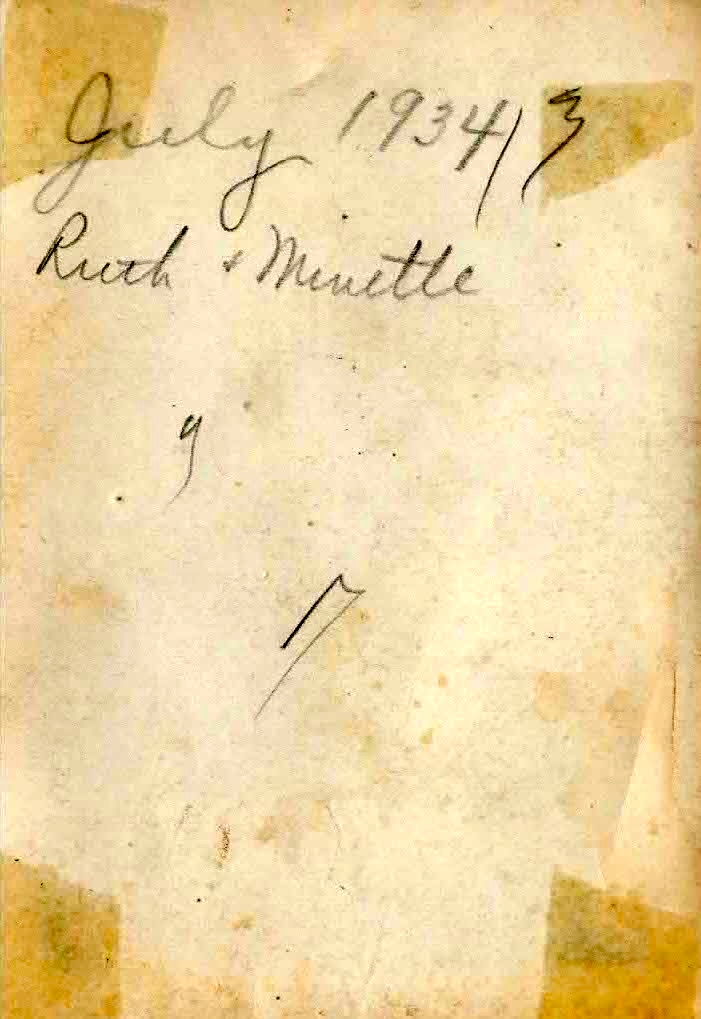 July 1934
Ruth & Minette
9
17